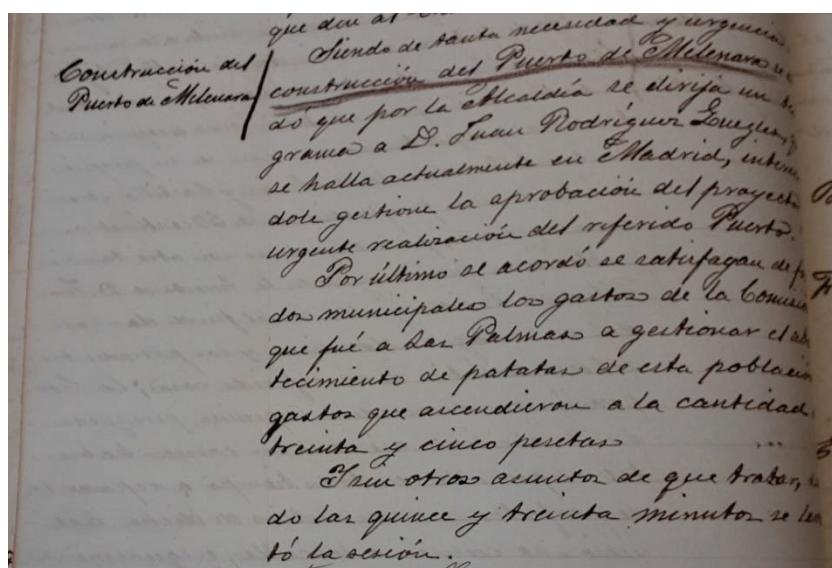 que
Construcción del
Puerto de Melenara
Siendo de tanta necesidad y urgencia
construcción del Puerto de Melenara se
dó que por la Alcaldía se dirija un
grama a D. Juan Rodríguez
se halla actualmente en Madrid, intere
dole gestione la aprobación del proyecto
urgente realización del referido Puerto.
Por último se acordó se satisfagan de
dos municipales los gastos de la Comisi
que fué a Las Palmas a gestionar el
tecimiento de patatas de esta població
gastos que ascendieron a la cantidad
treinta y cinco pesetas
Y sin otros asuntos de que tratar,
do las quince y treinta minutos se
tó la sesión.